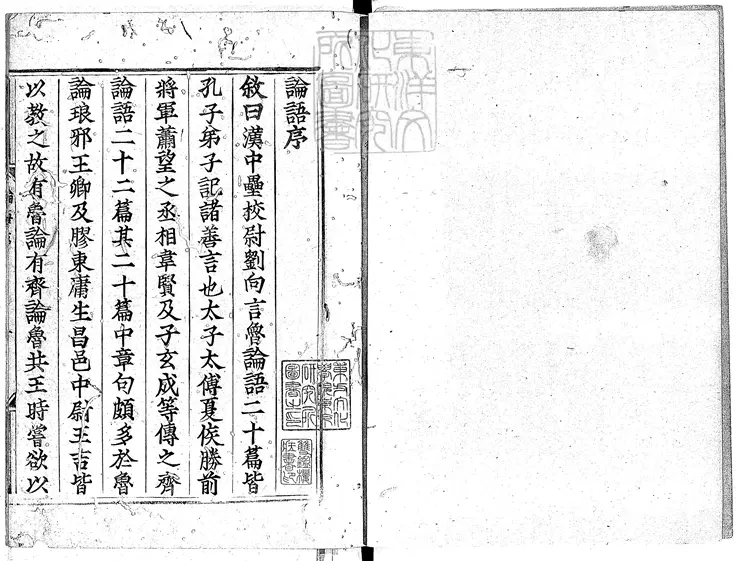 論語序
敘曰漢中壘校尉劉向言魯論語二十篇皆
孔子弟子記諸善言也太子太傅夏侯勝前
將軍蕭望之丞相韋賢及子玄成等傳之齊
論語二十二篇其二十篇中章句頗多於魯
論琅邪王卿及膠東庸生昌邑中尉王吉皆
以教之故有魯論有齊論魯共王時嘗欲以
東洋文
化研究
所圖書